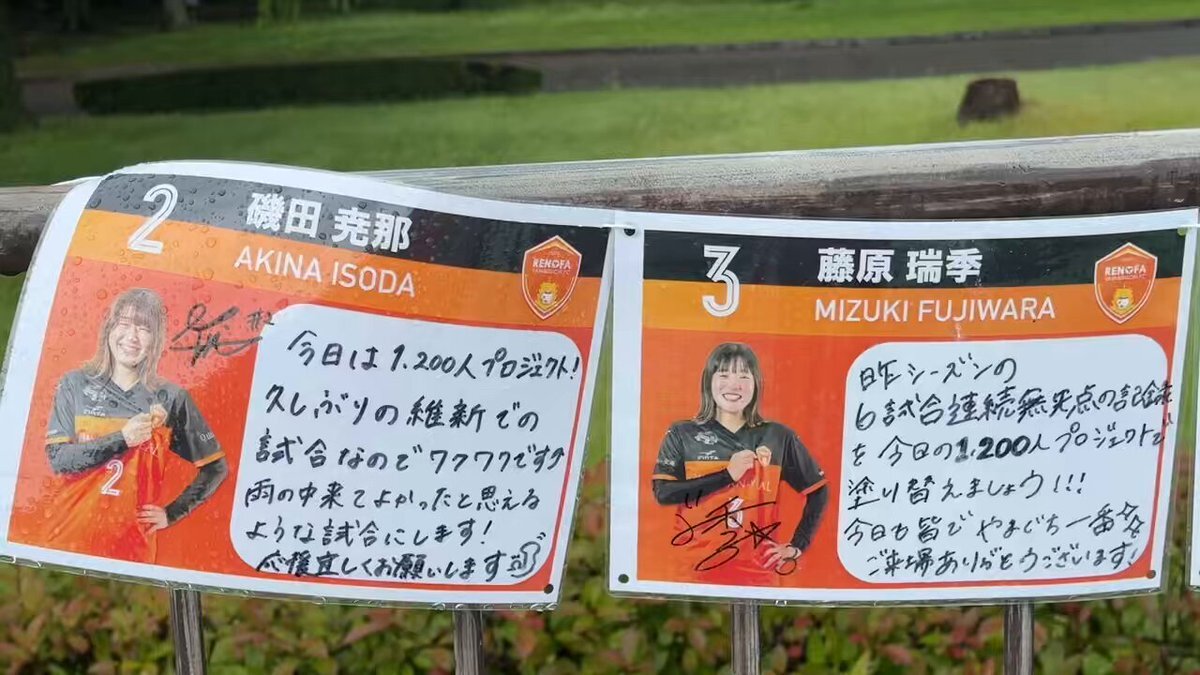 2 磯田 尭那
AKINA ISODA
RENOFA
#2
今日は1.200人プロジェクト!
久しぶりの維新での
試合なのでワクワクです♪
雨の中来てよかったと思える
ような試合にします!
応援宜しくお願いします
2
3 藤原 瑞季
MIZUKI FUJIWARA
RENOFA
昨シーズンの
6試合連続無失点の記録
を今日の1.200人プロジェクトで
塗り替えましょう!!!
今日も皆で やまぐち一番☆☆
ご来場ありがとうございます!